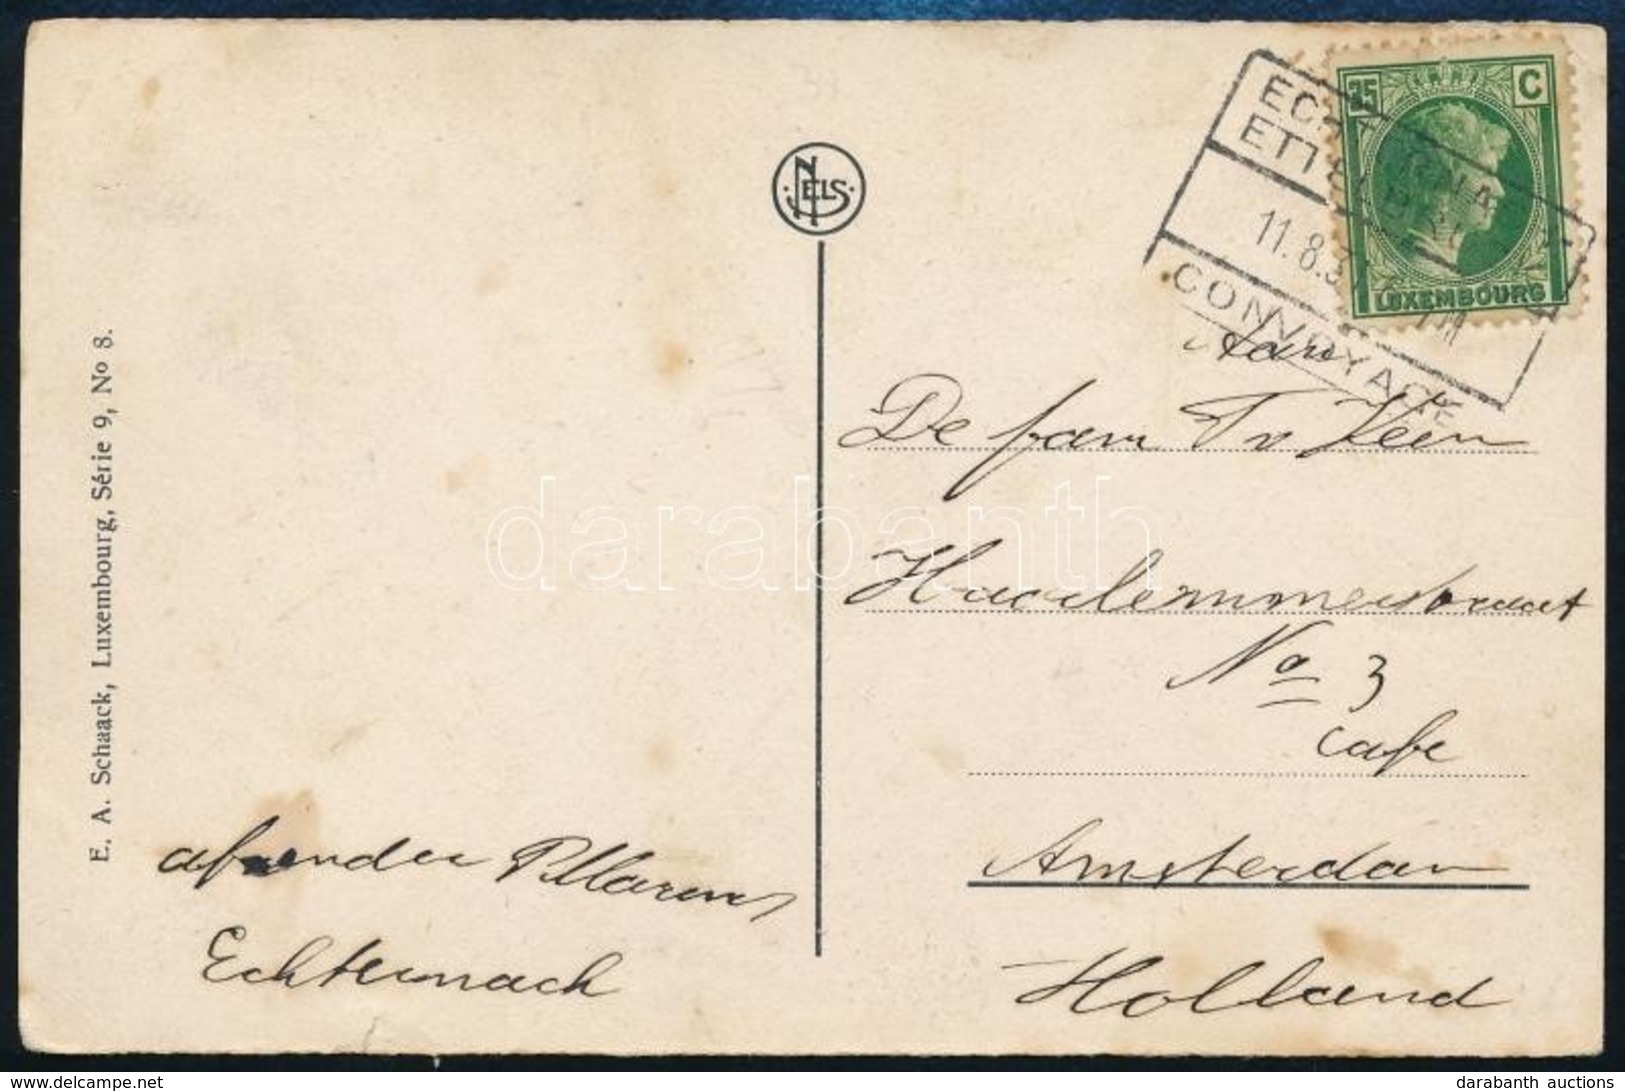 35 C
LUXEMBOURG
11.8.3
CONVOYAGE
NELS
E. A. Schaack, Luxembourg, Série 9, No 8.
Aan
De fam Tv Veen
Haarlemmerstraat
No 3
cafe
Amsterdam
Holland
afzender P. Marens
Echternach
darabanth
delcampe.net
darabanth auctions